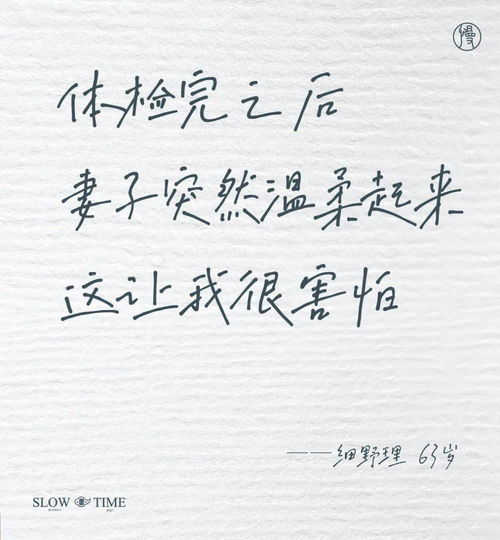 慢
体检完之后
妻子突然温柔起来
这让我很害怕
——细野理 63岁
SLOW TIME